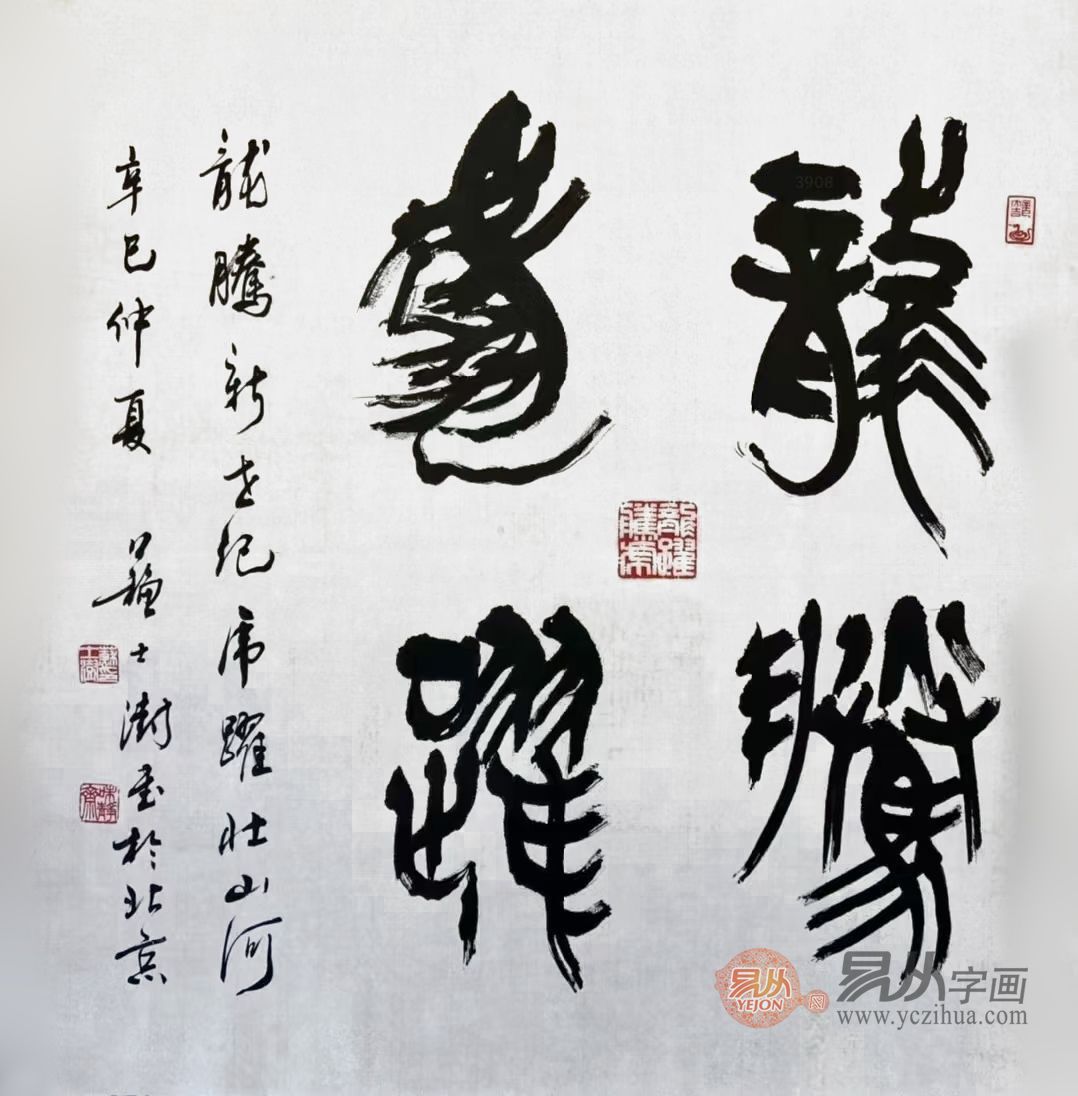 龍騰
虎躍
龍騰新世紀虎躍壯山河
辛巳仲夏蘇士澍書於北京
味靜齋
3908
易从字画
YEJON
网
www.yczihua.com